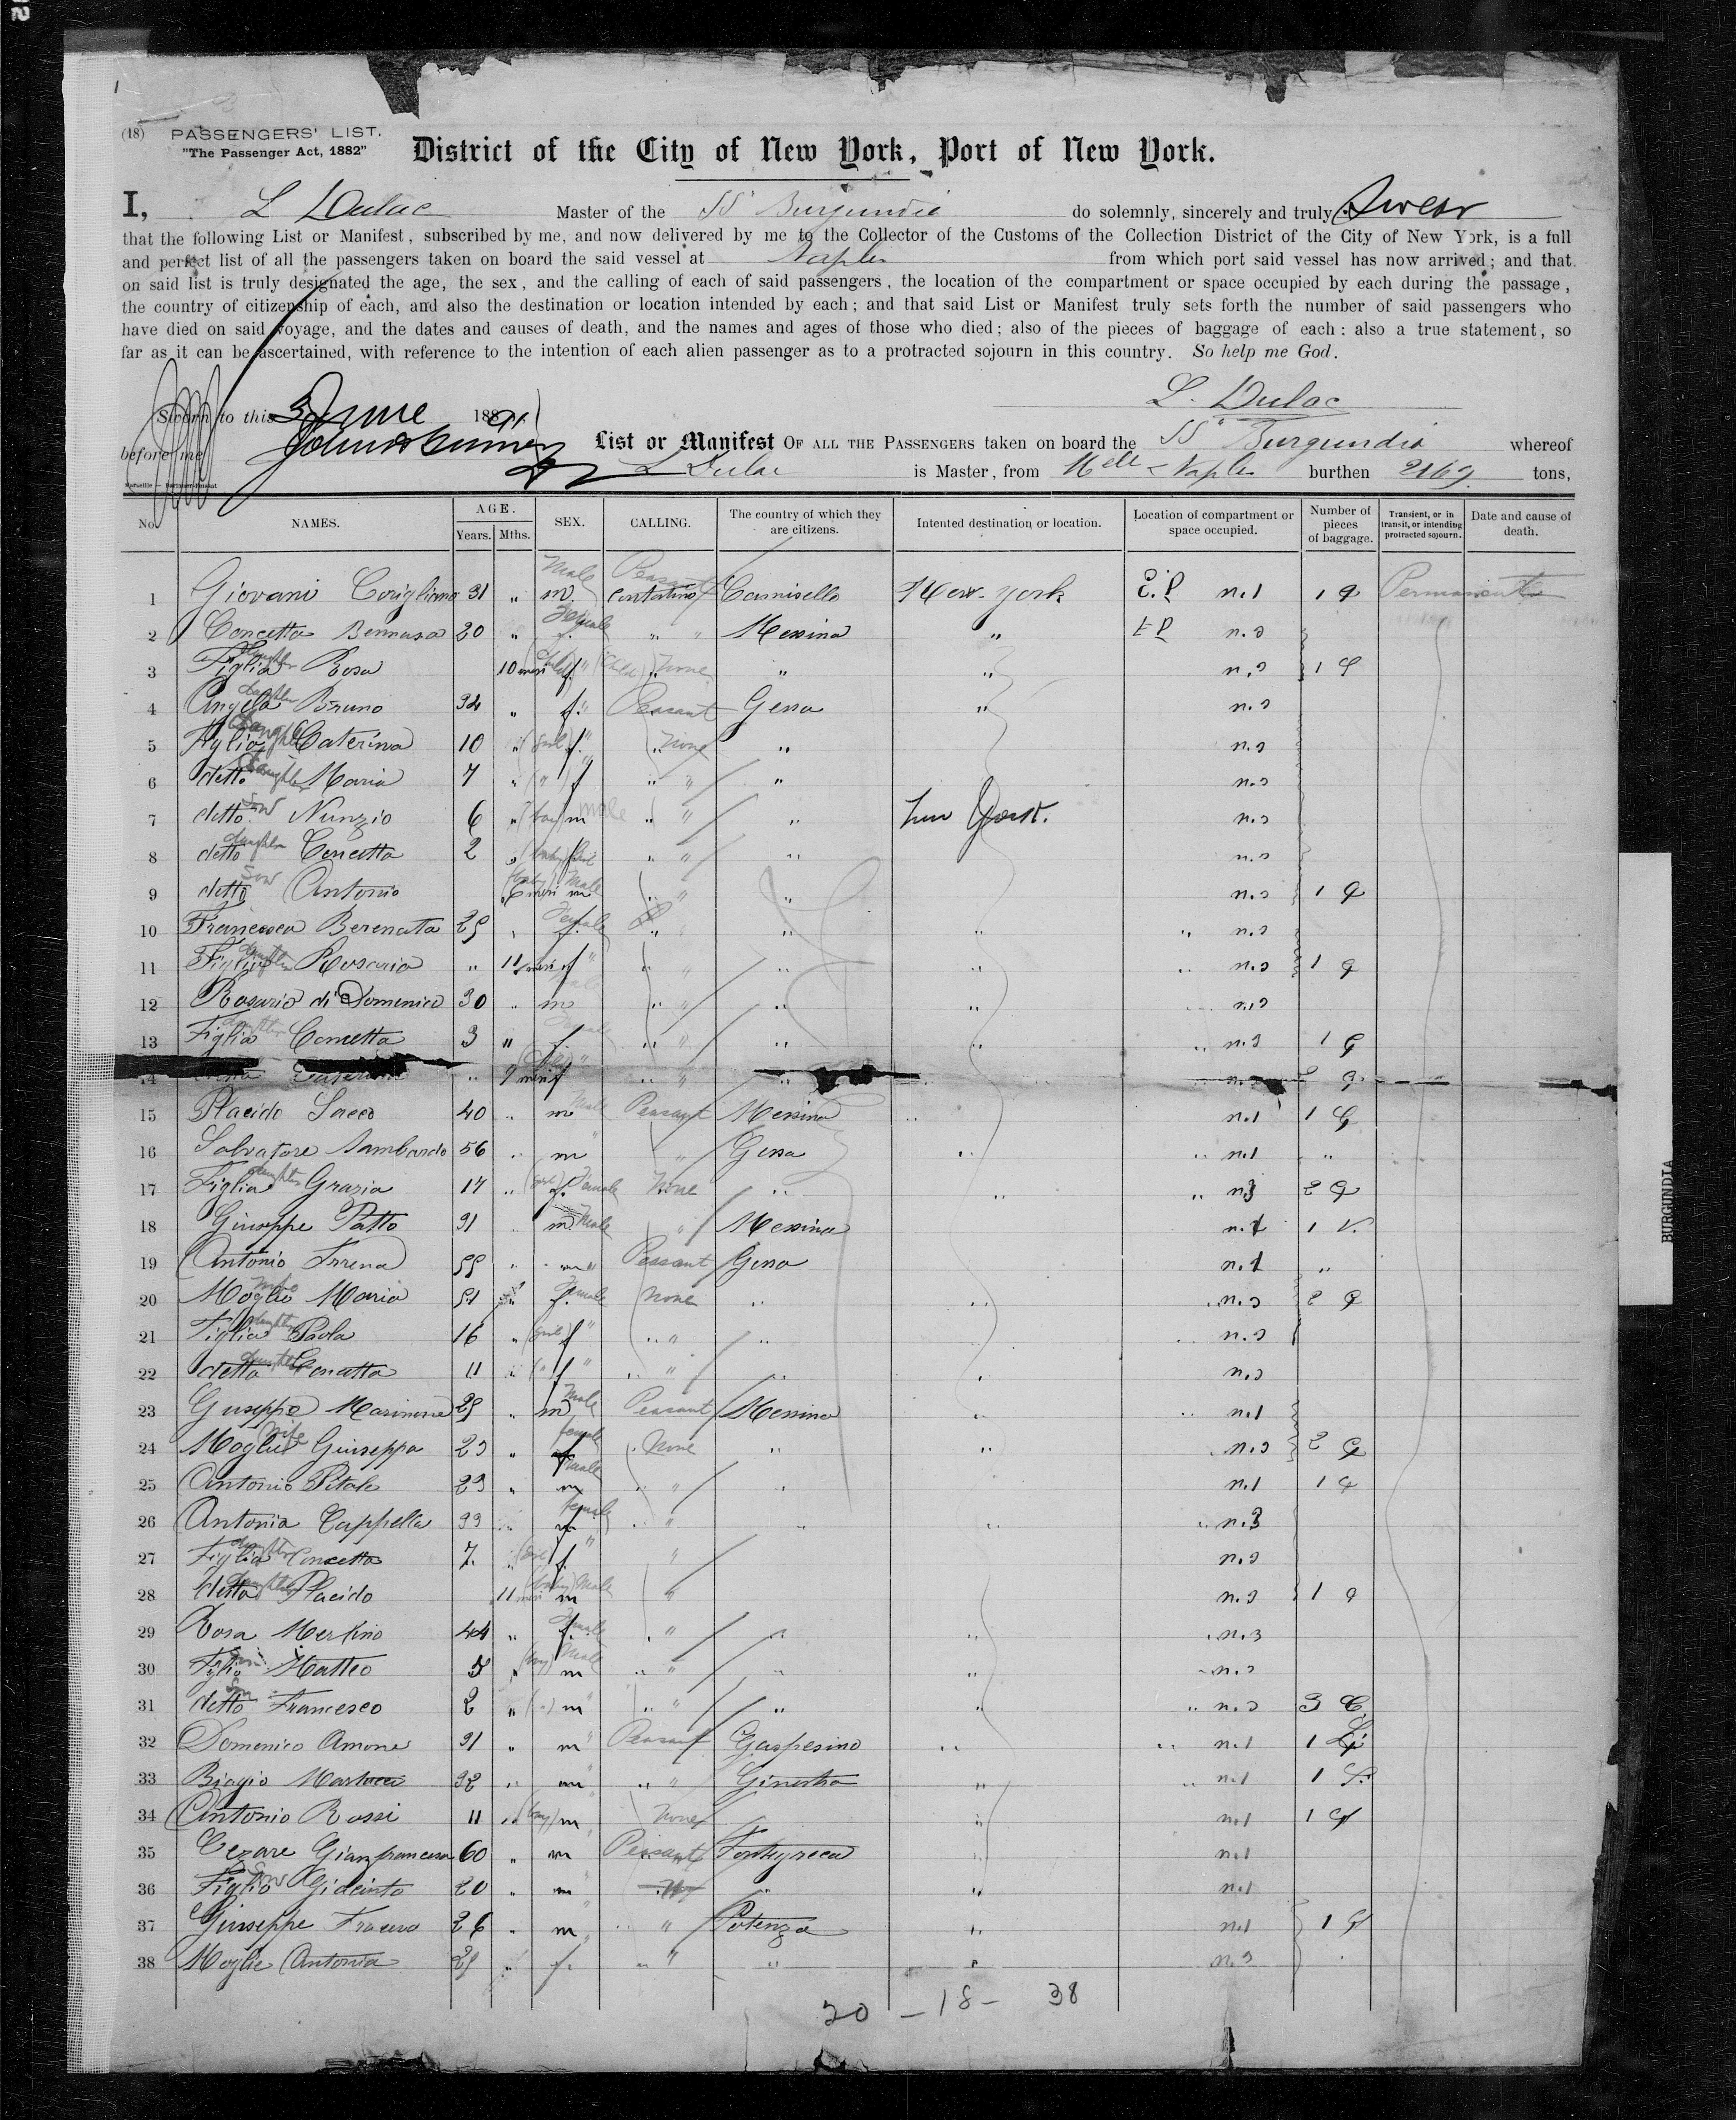 (18) PASSENGERS' LIST.
"The Passenger Act, 1882"
District of the City of New York, Port of New York.
I, L Dulac Master of the SS Burgundia do solemnly, sincerely and truly Swear
that the following List or Manifest, subscribed by me, and now delivered by me to the Collector of the Customs of the Collection District of the City of New York, is a full
and perfect list of all the passengers taken on board the said vessel at Naples from which port said vessel has now arrived; and that
on said list is truly designated the age, the sex, and the calling of each of said passengers, the location of the compartment or space occupied by each during the passage,
the country of citizenship of each, and also the destination or location intended by each; and that said List or Manifest truly sets forth the number of said passengers who
have died on said voyage, and the dates and causes of death, and the names and ages of those who died; also of the pieces of baggage of each; also a true statement, so
far as it can be ascertained, with reference to the intention of each alien passenger as to a protracted sojourn in this country. So help me God.
L. Dulac
Sworn to this 3 June 1891
before me
List or Manifest OF ALL THE PASSENGERS taken on board the SS Burgundia whereof
L Dulac is Master, from Naples burthen tons,
No. NAMES. AGE. Years. Mths. SEX. CALLING. The country of which they are citizens. Intented destination or location. Location of compartment or space occupied. Number of pieces of baggage. Transient, or in transit, or intending protracted sojourn. Date and cause of death.
1 Giovani Corigliano 31 " Male m Peasant contadino Camisello New-york n.1 1 Permanent
2 Concetta 20 " Female f. " " Messina " n.3
3 Figlia daughter Rosa 10 mesi (Child) f. " (Child) None " " n.3 1
4 Angela Bruno 34 " f. " Peasant Gesso " n.3
5 Figlia daughter Caterina 10 " (girl) f. " None " n.3
6 detto daughter Maria 7 " (") f " " " n.3
7 detto Son Nunzio 6 " (boy) m male " " " New York. n.3
8 detto daughter Concetta 2 " (baby) " " " n.3
9 detto Son Antonio 6 mesi m Male " " " n.3 1
10 Francesca Berenata 25 " Female f. " " " " n.3
11 Figlia daughter Rosaria " 11 mesi f " " " " " " n.3 1
12 Rosario di Domenico 30 " m " " " " n.3
13 Figlia daughter Concetta 3 " f " " " " " n.3 1
14 " 9 mesi f " "
15 Placido Sacco 40 " m Male Peasant Messina " n.1 1
16 Salvatore 56 " m " " Gesso " " n.1 "
17 Figlia daughter Grazia 17 " (girl) f. Female None " " " n.3 2
18 Giuseppe Patto 31 m. Male " Messina n.1 1
19 Antonio 55 " m " Peasant Gesso n.1 "
20 Moglie wife Maria 51 " Female f. None " " " n.3 2
21 Figlia daughter Paola 16 " (girl) f " " " " n.3
22 detta daughter Concetta 11 " (") f " " " " " n.3
23 Giuseppe 25 " m Male Peasant Messina " " n.1
24 Moglie wife Giuseppa 23 " female f None " " " n.3 2
25 Antonio Pitale 23 " male m " " " n.1 1
26 Antonia Cappella 33 " female " " " " " n.3
27 Figlia daughter Concetta 7. " (girl) f. " " n.3
28 detta Placido 11 mesi (baby) Male m " n.3 1
29 Rosa Merlino 44 " Female f. " " " " n.3
30 Figlio Son Matteo 5 " (boy) Male m " " " " n.3
31 detto Son Francesco 2 " (") m " " " " " " n.3 3
32 Domenico Amone 31 " m " Peasant Gaspesino " " n.1 1
33 Biagio Martucci 32 " m " " " Ginestra " " n.1 1
34 Antonio Rossi 11 " (boy) m None " n.1 1
35 Cezare Gianfrancesco 60 " m Peasant " n.1
36 Figlio Son Giacinto 20 " m " " " n.1
37 Giuseppe 26 " m " " " Potenza " n.1 1
38 Moglie Antonia 25 " f. " " " " n.3
20 - 18 - 38
BURGUNDIA